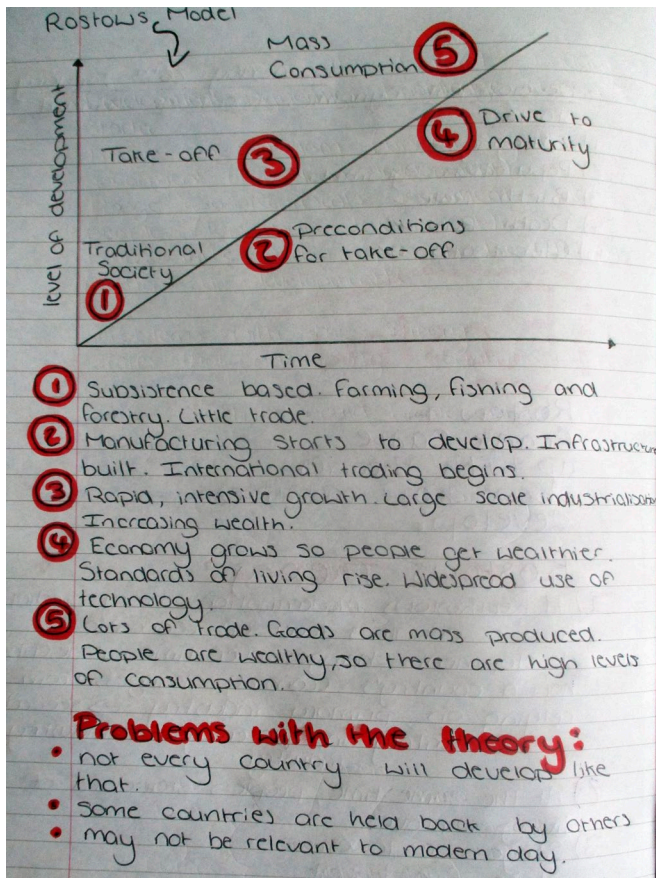 Rostows Model
Mass
Consumption 5
4 Drive to
maturity
Take-off 3
2 Preconditions
for take-off
Traditional
Society
1
level of development
Time
1 Subsistence based. Farming, fishing and
forestry. Little trade.
2 Manufacturing starts to develop. Infrastructure
built. International trading begins.
3 Rapid, intensive growth. Large scale industrialisation
Increasing wealth.
4 Economy grows so people get wealthier.
Standards of living rise. Widespread use of
technology.
5 Lots of trade. Goods are mass produced.
People are wealthy, so there are high levels
of consumption.
Problems with the theory:
• not every country will develop like
that.
• some countries are held back by others
• may not be relevant to modern day.